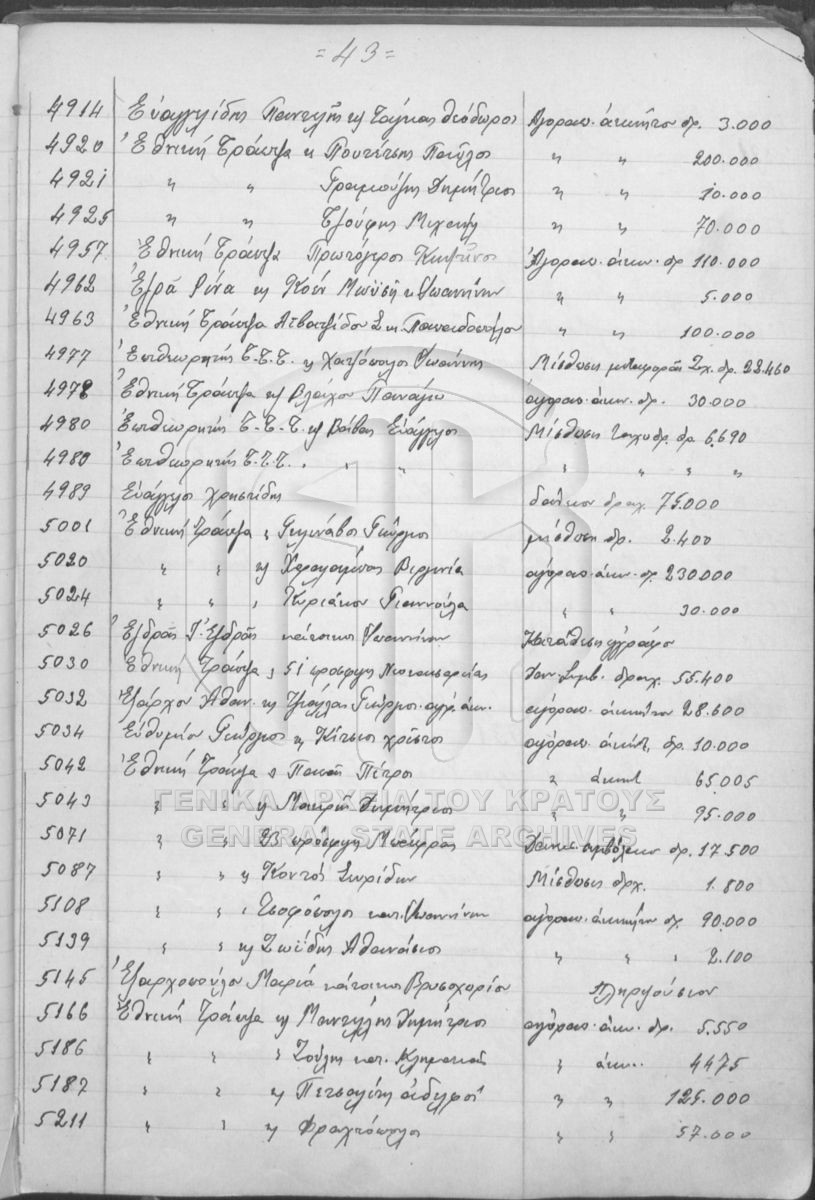 = 43 =
4914 Εὐαγγελίδης Παντελῆς κ Τσίγκας Θεόδωρος Ἀγοραπ. ἀκινήτου δρ. 3.000
4920 Ἐθνική Τράπεζα κ Πουτέτσης Παῦλος " " 200.000
4921 " " Γραμμούζης Δημήτριος " " 10.000
4925 " " Τζούφης Μιχαήλ " " 70.000
4957 Ἐθνική Τράπεζα Πρωτόγερος Κων/τῖνος Ἀγοραπ. ἀκιν. δρ 110.000
4962 Ἐζρᾶ Ρένα κ Κοέν Μωϋσῆ κ. Ἰωαννίνων " " 5.000
4963 Ἐθνική Τράπεζα " " 100.000
4977 Ἐπιθεωρητής Τ.Τ.Τ. κ Χατζόπουλος Ἰωάννης Μίσθωσις μεταφορᾶς Ταχ. δρ. 22.460
4978 Ἐθνική Τράπεζα κ Βλάχου Παναγιω ἀγοραπ. ἀκιν. δρ. 30.000
4980 Ἐπιθεωρητής Τ.Τ.Τ κ Βάββας Εὐάγγελος Μίσθωσις Ταχυδρ. δρ. 6.690
4980 Ἐπιθεωρητής Τ.Τ.Τ. " " " " " " "
4989 Εὐάγγελος Χρηστίδης δάνειον δραχ. 75.000
5001 Ἐθνική Τράπεζα " Γιώργιος μίσθωσις δρ. 2.400
5020 " " κ Χαραλαμπος Βεργινία ἀγοραπ. ἀκιν. δρ. 230.000
5024 " " " Κυριάκου Γιαννούλα " " 30.000
5026 Ἐζδρᾶς Ἐζδρᾶς κάτοικος Ἰωαννίνων Κατάθεσις ἐγγράφου
5030 Ἐθνική Τράπεζα " 51 πρόσφυγες Νεοκαισαρείας Δαν. Συμβ. δραχ. 55.400
5032 Ἐξάρχου Ἀθαν. κ Τζιάλλας Γεώργιος ἀγορ. ἀκιν. ἀγοραπ. ἀκινήτου 28.600
5034 Εὐθυμίου Γεώργιος κ Κίτσιος Χρῆστος ἀγοραπ. ἀκινήτ. δρ. 10.000
5042 Ἐθνική Τράπεζα κ Παππᾶ Πέτρος " ἀκινητ 65.005
5043 " " κ Μακρῆ Δημήτριος " " 95.000
5071 " " 23 πρόσφυγ. Μπάφρας Δανεισ. συμβόλαιον δρ. 17.500
5087 " " κ Κοντός Σπυρίδων Μίσθωσις δρχ. 1.800
5108 " " " κατ. Ἰωαννίνων ἀγοραπ. ἀκινήτου δρ. 90.000
5139 " " κ Ζωΐδης Ἀθανάσιος " " " 2.100
5145 Ἐξαρχοπούλου Μαριά κάτοικος Βρυσοχωρίου Πληρεξούσιον
5166 Ἐθνική Τράπεζα κ Μαντέλλης Δημήτριος ἀγοραπ. ἀκιν. δρ. 5.550
5186 " " " Ζούλης κατ. Κληματιᾶς " ἀκιν. 4475
5187 " " κ Πετσαλίτης ἀδελφοί " " 125.000
5211 " " κ Φραχτόπουλος " " 57.000
ΓΕΝΙΚΑ ΑΡΧΕΙΑ ΤΟΥ ΚΡΑΤΟΥΣ
GENERAL STATE ARCHIVES